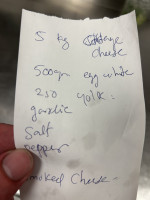 5 kg Cottage
cheese
500gr egg white
250 yolk.
garlic
Salt
pepper
smoked Cheese-